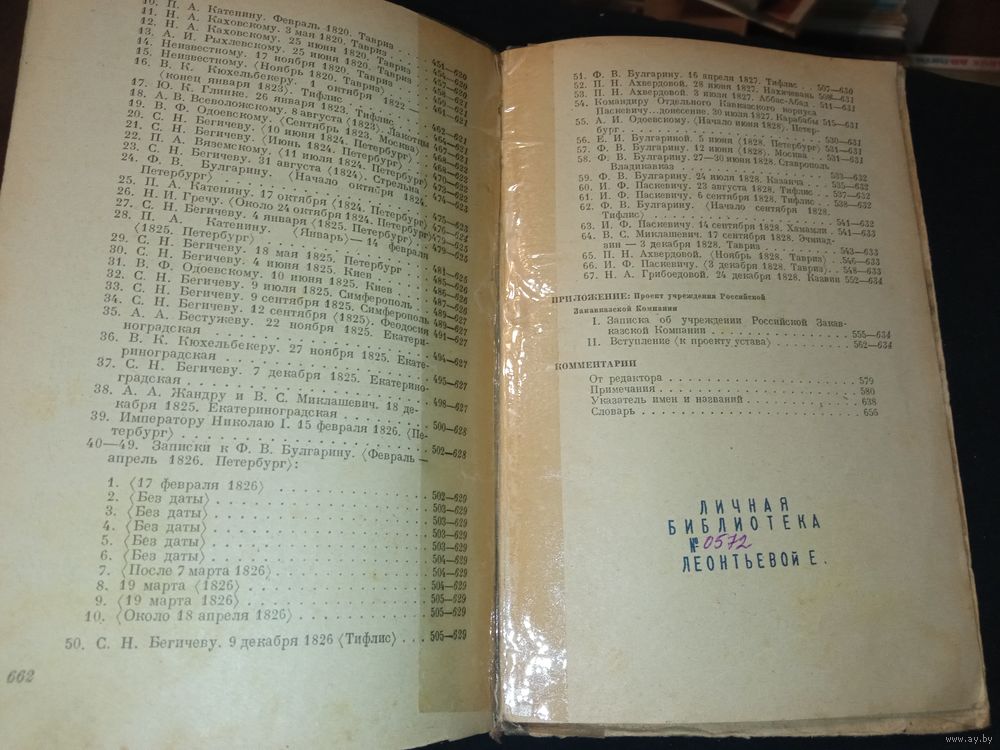 10. П. А. Катенину. Февраль 1820. Тавриз . .
11. Н. А. Каховскому. 3 мая 1820. Тавриз . . 451—620
12. Н. А. Каховскому. 25 июня 1820. Тавриз
13. А. И. Рыхлевскому. 25 июня 1820. Тавриз
14. Неизвестному. 17 ноября 1820. Тавриз
15. Неизвестному. ⟨Ноябрь 1820. Тавриз⟩
16. В. К. Кюхельбекеру. 1 октября 1822 —
⟨конец января 1823⟩. Тифлис
17. Ю. К. Глинке. 26 января 1823. Тифлис
18. А. В. Всеволожскому. 8 августа ⟨1823⟩. Лакотцы
19. В. Ф. Одоевскому. ⟨Сентябрь 1823. Москва⟩
20. С. Н. Бегичеву. ⟨10 июня 1824. Петербург⟩
21. С. Н. Бегичеву. ⟨Июнь 1824. Петербург⟩
22. П. А. Вяземскому. ⟨11 июля 1824. Петербург⟩
23. С. Н. Бегичеву. 31 августа ⟨1824⟩. Стрельна
24. Ф. В. Булгарину. ⟨Начало октября 1824.
Петербург⟩
25. П. А. Катенину. 17 октября ⟨1824. Петербург⟩
26. Н. И. Гречу. ⟨Около 24 октября 1824. Петербург⟩
27. С. Н. Бегичеву. 4 января ⟨1825. Петербург⟩
28. П. А. Катенину. ⟨Январь⟩ — 14 февраля
⟨1825. Петербург⟩
29. С. Н. Бегичеву. 18 мая 1825. Петербург 481—625
30. С. Н. Бегичеву. 4 июня 1825. Киев
31. В. Ф. Одоевскому. 10 июня 1825. Киев
32. С. Н. Бегичеву. 9 июля 1825. Симферополь
33. С. Н. Бегичеву. 9 сентября 1825. Симферополь
34. С. Н. Бегичеву. 12 сентября ⟨1825⟩. Феодосия
35. А. А. Бестужеву. 22 ноября 1825. Екатери-
ноградская . . . 494—627
36. В. К. Кюхельбекеру. 27 ноября 1825. Екате-
риноградская . . . 495—627
37. С. Н. Бегичеву. 7 декабря 1825. Екатерино-
градская . . . 498—627
38. А. А. Жандру и В. С. Миклашевич. 18 де-
кабря 1825. Екатериноградская . . . 500—628
39. Императору Николаю I. 15 февраля 1826. ⟨Пе-
тербург⟩ . . . 502—628
40—49. Записки к Ф. В. Булгарину. ⟨Февраль —
апрель 1826. Петербург⟩:
1. ⟨17 февраля 1826⟩ . . . 502—629
2. ⟨Без даты⟩ . . . 503—629
3. ⟨Без даты⟩ . . . 503—629
4. ⟨Без даты⟩ . . . 503—629
5. ⟨Без даты⟩ . . . 503—629
6. ⟨Без даты⟩ . . . 504—629
7. ⟨После 7 марта 1826⟩ . . . 504—629
8. 19 марта ⟨1826⟩ . . . 504—629
9. ⟨19 марта 1826⟩ . . . 505—629
10. ⟨Около 18 апреля 1826⟩ . . . 505—629
50. С. Н. Бегичеву. 9 декабря 1826 ⟨Тифлис⟩ . . . 505—629
662
51. Ф. В. Булгарину. 16 апреля 1827. Тифлис . . 507—630
52. П. Н. Ахвердовой. 28 июня 1827. Нахичевань 508—631
53. П. Н. Ахвердовой. 3 июля 1827. Аббас-Абад
54. Командиру Отдельного Кавказского корпуса
Паскевичу...донесение. 30 июля 1827. Карабабы 515—631
55. А. И. Одоевскому. ⟨Начало июня 1828⟩. Петер-
бург . . . 530—631
56. Е. И. Булгариной. 5 июня ⟨1828. Петербург⟩ 531—631
57. Ф. В. Булгарину. 12 июня ⟨1828⟩. Москва . .
58. Ф. В. Булгарину. 27—30 июня 1828. Ставрополь
Владикавказ . . . 533—632
59. Ф. В. Булгарину. 24 июля 1828. Казанча . . 535—632
60. И. Ф. Паскевичу. 23 августа 1828. Тифлис . 537—632
61. И. Ф. Паскевичу. 6 сентября 1828. Тифлис . . 538—632
62. Ф. В. Булгарину. ⟨Начало сентября 1828.
Тифлис⟩ . . . 541—632
63. И. Ф. Паскевичу. 14 сентября 1828. Хамамли
64. В. С. Миклашевич. 17 сентября 1828. Эчмиад-
зин — 3 декабря 1828. Тавриз . . . 543—633
65. П. Н. Ахвердовой. ⟨Ноябрь 1828. Тавриз⟩ . . 546—633
66. И. Ф. Паскевичу. ⟨3 декабря 1828. Тавриз⟩ . . 548—633
67. Н. А. Грибоедовой. 24 декабря 1828. Казвин 552—634
ПРИЛОЖЕНИЕ: Проект учреждения Российской
Закавказской Компании
I. Записка об учреждении Российской Закав-
казской Компании . . . 555—634
II. Вступление ⟨к проекту устава⟩ . . . 562—634
КОММЕНТАРИИ
От редактора . . . 579
Примечания . . . 580
Указатель имен и названий . . . 638
Словарь . . . 656
ЛИЧНАЯ
БИБЛИОТЕКА
№ 0572
ЛЕОНТЬЕВОЙ Е.
www.ay.by